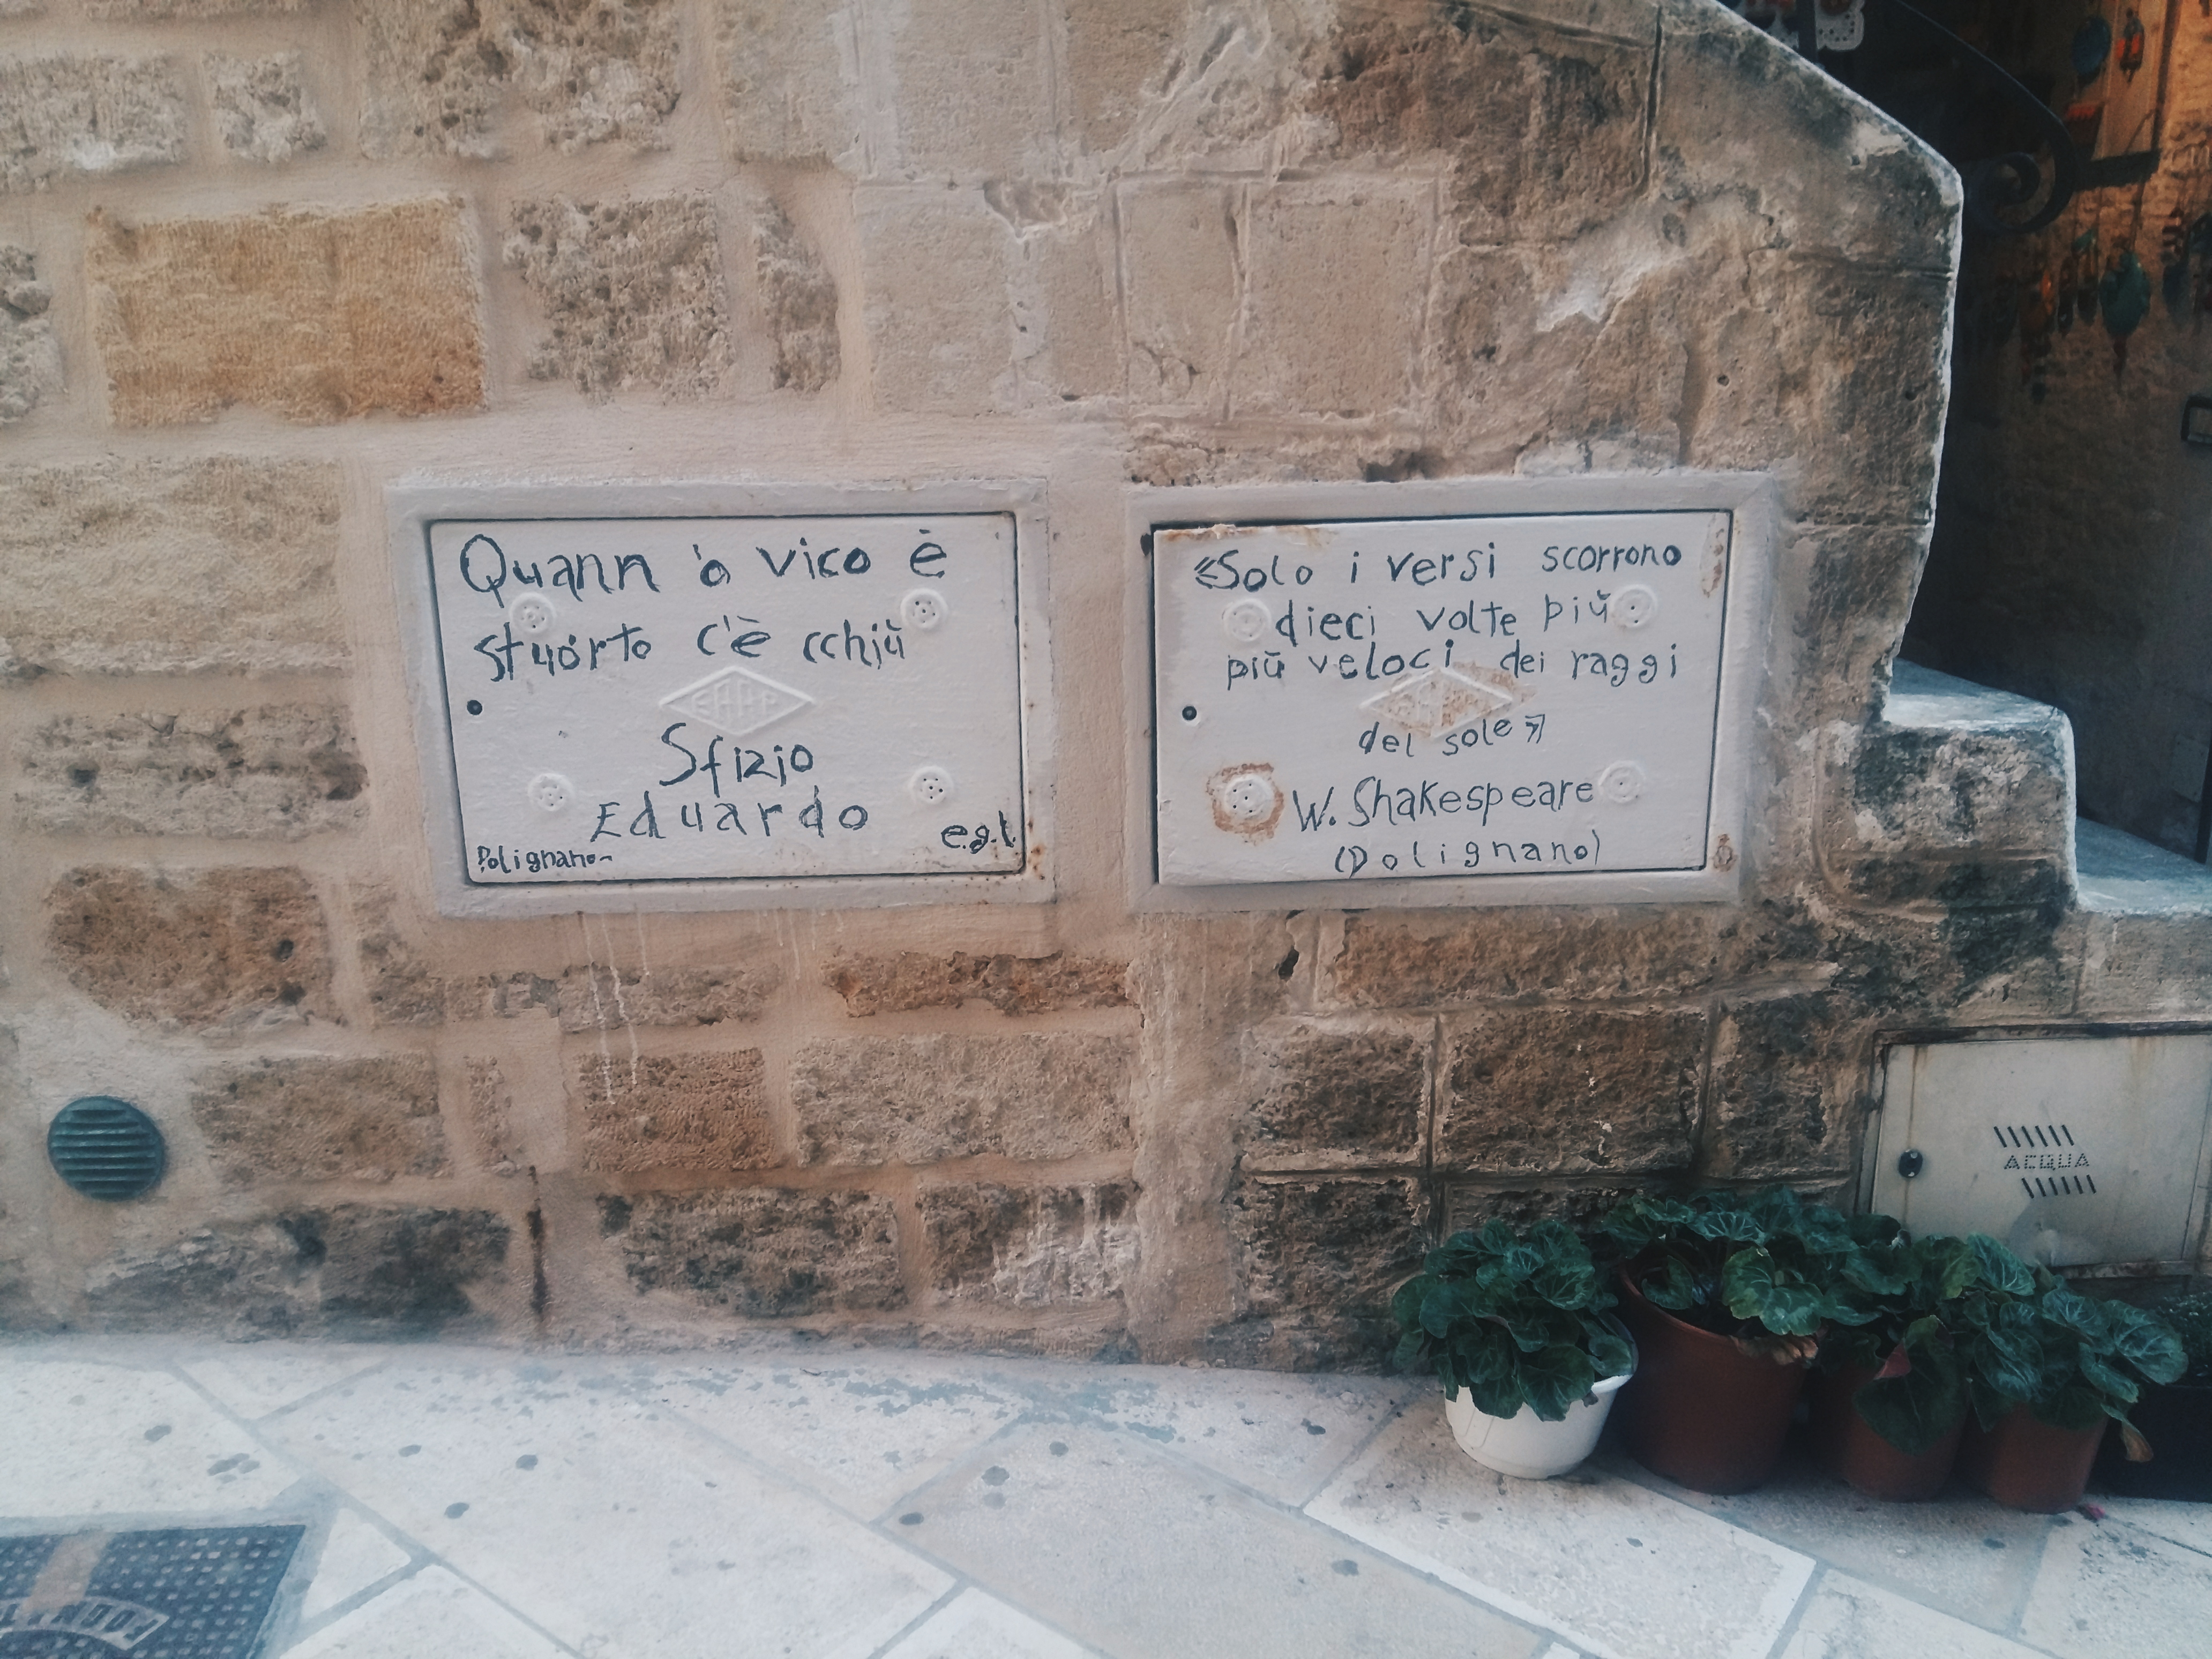 Quann 'o vico è
stuorto c'è cchiù
Sfizio
Eduardo
e.g.l.
Polignano~
EAAP
«Solo i versi scorrono
dieci volte più
più veloci dei raggi
del sole»
W. Shakespeare
(Polignano)
ACQUA